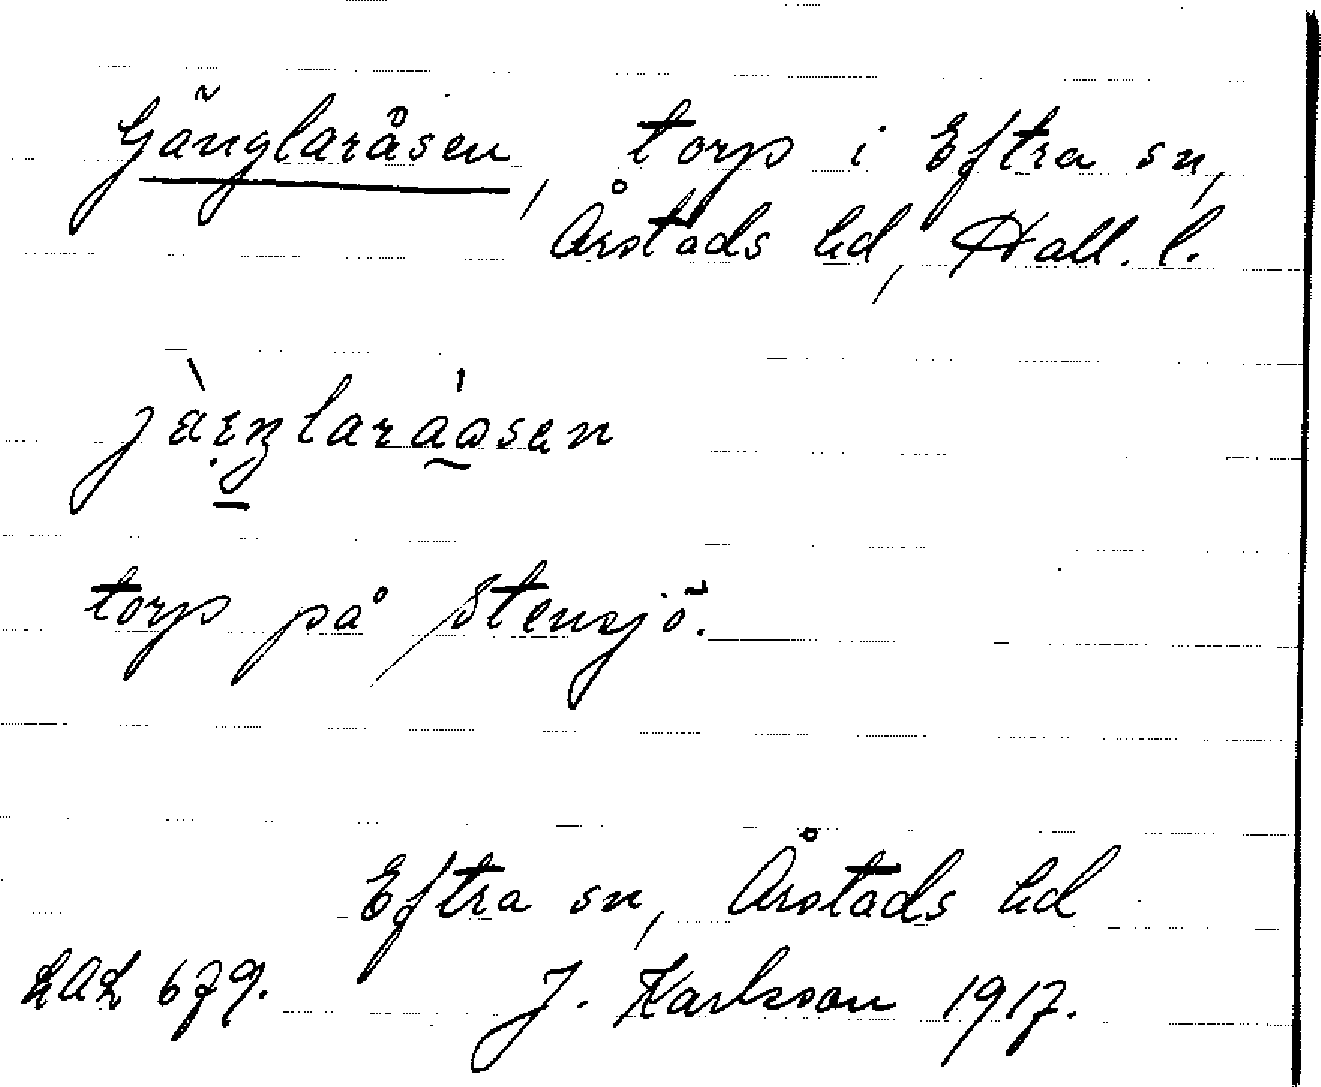 Gänglaråsen, torp i Eftra sn,
Årstads hd, Hall. l.
torp på Stensjö.
Eftra sn, Årstads hd
LAL 679. J. Karlsson 1917.